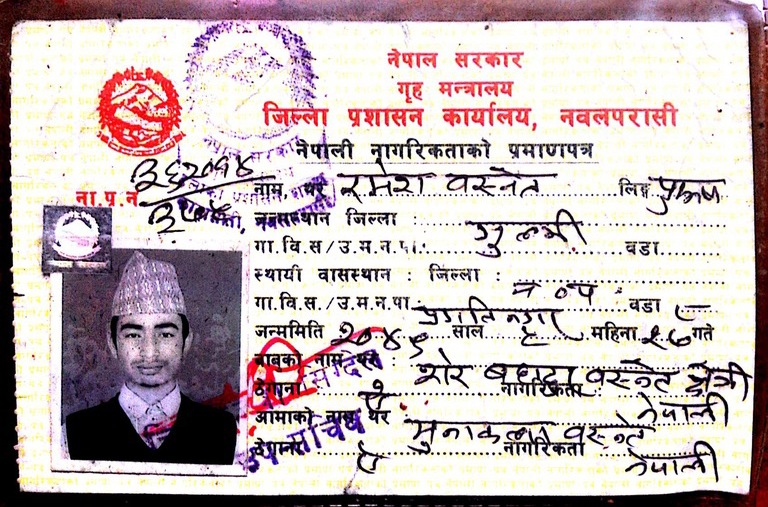 नेपाल सरकार
गृह मन्त्रालय
जिल्ला प्रशासन कार्यालय, नवलपरासी
नेपाली नागरिकताको प्रमाणपत्र
ना.प्र.नं
नाम, थर रमेश वस्नेत लिङ्ग पुरुष
जन्मस्थान जिल्ला : गुल्मी
गा.वि.स/उ.म.न.पा.: वडा
स्थायी वासस्थान : जिल्ला : न०प०
गा.वि.स./उ.म.न.पा: प्रगतिनगर वडा ८
जन्ममिति साल महिना २७ गते
बाबुको नाम थर शेर बहादुर वस्नेत क्षेत्री
ठेगाना नागरिकता : नेपाली
आमाको नाम थर वस्नेत
ठेगाना नागरिकता नेपाली